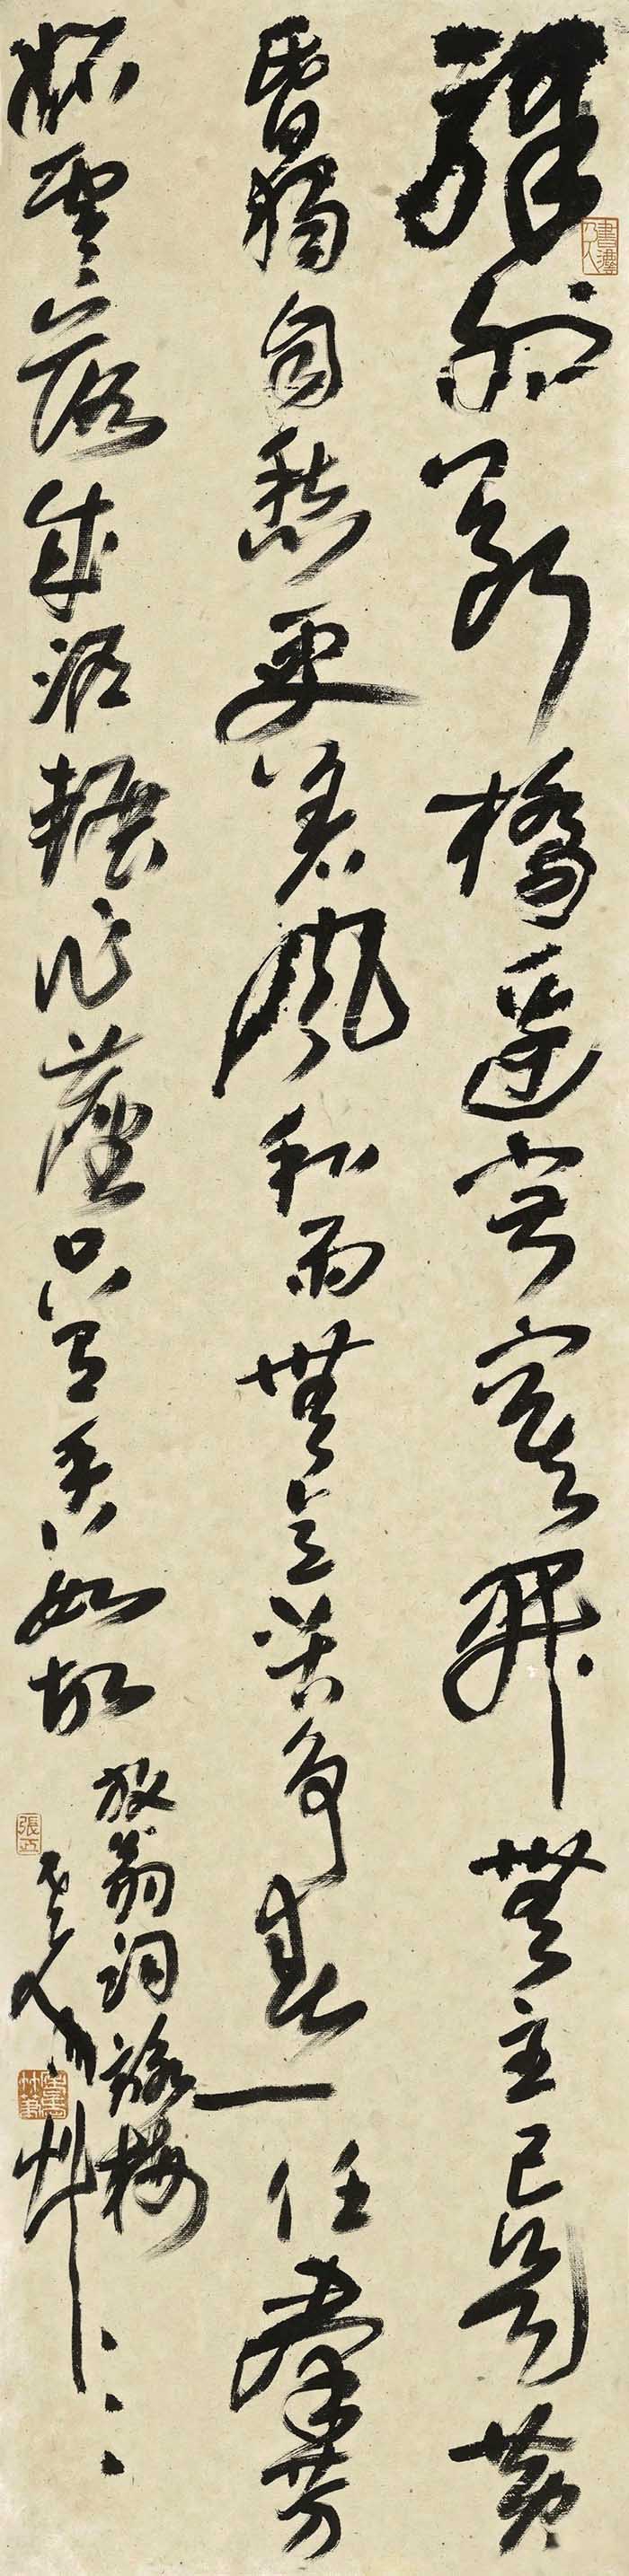 驛外斷橋邊寂寞開無主已是黃
昏獨自愁更著風和雨無意苦争春一任羣芳
妬零落成泥輾作塵只有香如故
放翁詞詠梅
張正